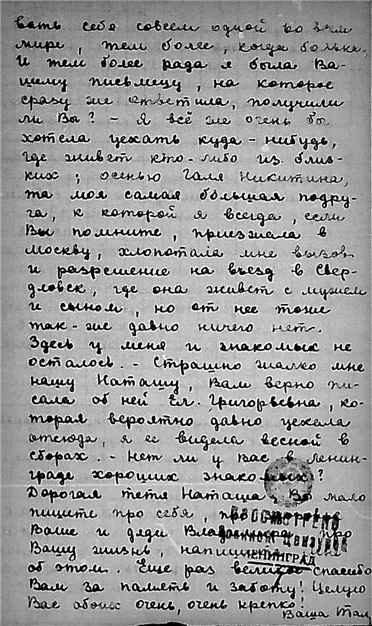 вать себя совсем одной во всем
мире, тем более, когда больна.
И тем более рада я была Ва-
шему письмецу, на которое
сразу же ответила, получили
ли Вы? – Я всё же очень бы
хотела уехать куда-нибудь,
где живет кто-либо из близ-
ких; осенью Галя Никитина,
та моя самая большая подру-
га, к которой я всегда, если
Вы помните, приезжала в
Москву, хлопотала мне вызов
и разрешение на въезд в Свер-
дловск, где она живет с мужем
и сыном, но от нее тоже
так-же давно ничего нет.
Здесь у меня и знакомых не
осталось. – Страшно жалко мне
нашу Наташу, Вам верно пи-
сала об ней Ел. Григорьевна, ко-
торая вероятно давно уехала
отсюда, я ее видела весной в
сборах. – Нет ли у Вас в Ленин-
граде хороших знакомых?
Дорогая тетя Наташа, Вы мало
пишите про себя, про
Ваше и дяди про
Вашу жизнь, напишите
об этом. Еще раз великое спасибо
Вам за память и заботу! Целую
Вас обоих очень, очень крепко!
Ваша Тат
ПРОСМОТРЕНО
Военной Цензурой
ЛЕНИНГРАД